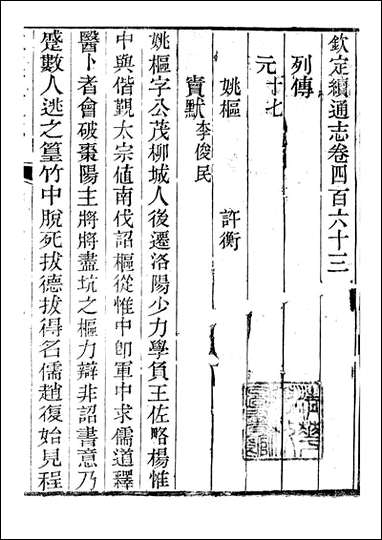 欽定續通志卷四百六十三
列傳
元十七
姚樞 許衡
竇默 李俊民
姚樞字公茂柳城人後遷洛陽少力學負王佐略楊惟
中與偕覲太宗値南伐詔樞從惟中卽軍中求儒道釋
醫卜者會破棗陽主將將盡坑之樞力辯非詔書意乃
蹙數人逃之篁竹中脫死拔德拔得名儒趙復始見程